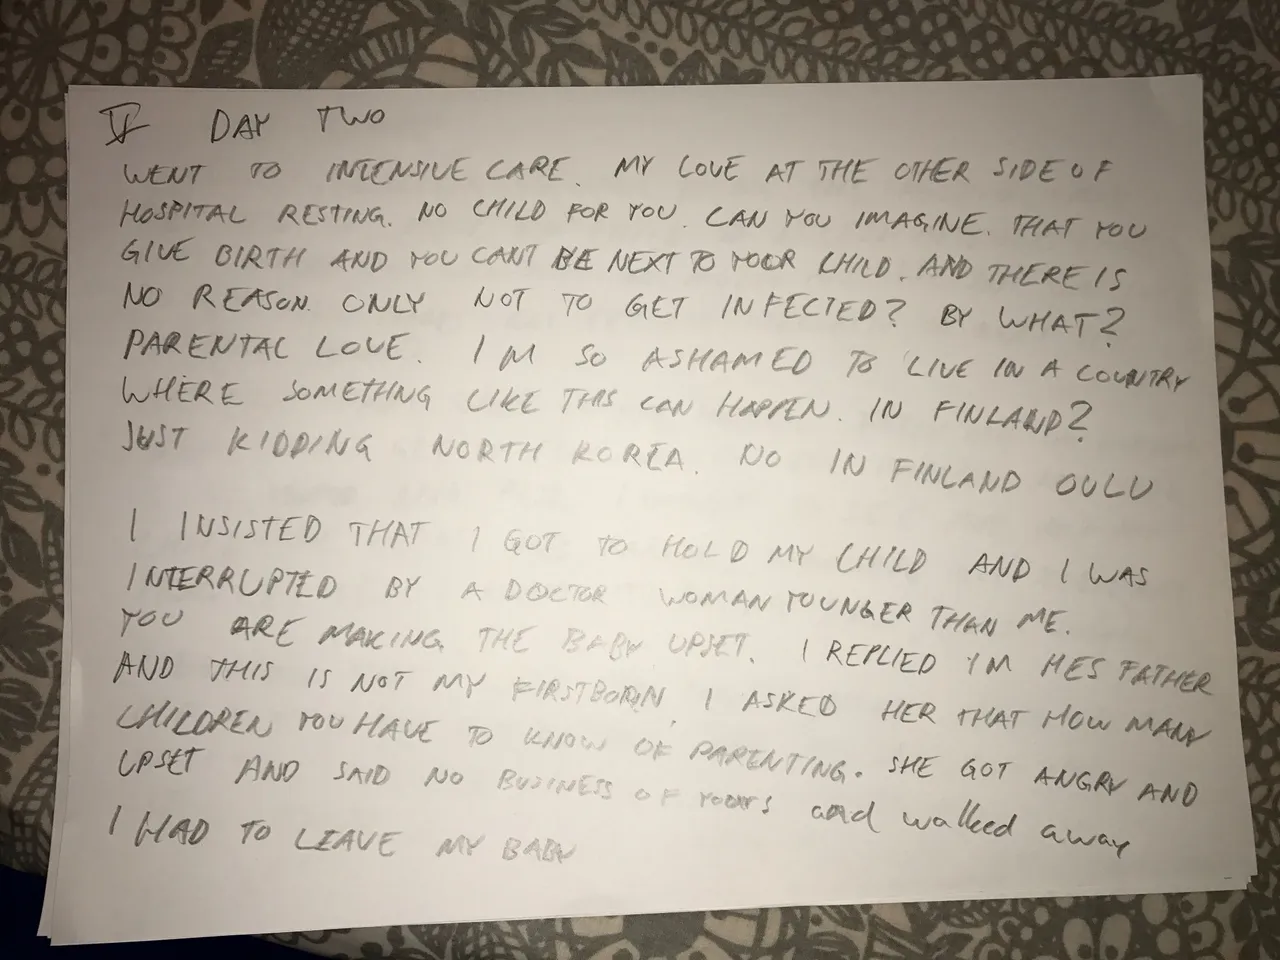 V DAY TWO
WENT TO INTENSIVE CARE. MY LOVE AT THE OTHER SIDE OF
HOSPITAL RESTING. NO CHILD FOR YOU. CAN YOU IMAGINE. THAT YOU
GIVE BIRTH AND YOU CANT BE NEXT TO YOOR CHILD. AND THERE IS
NO REASON. ONLY NOT TO GET INFECTED? BY WHAT?
PARENTAL LOVE. I M SO ASHAMED TO LIVE IN A COUNTRY
WHERE SOMETHING LIKE THIS CAN HAPPEN. IN FINLAND?
JUST KIDDING NORTH KOREA. NO IN FINLAND OULU
I INSISTED THAT I GOT TO HOLD MY CHILD AND I WAS
INTERRUPTED BY A DOCTOR WOMAN YOUNGER THAN ME.
YOU ARE MAKING THE BABY UPSET. I REPLIED I'M HES FATHER
AND THIS IS NOT MY FIRSTBORN. I ASKED HER THAT HOW MANY
CHILDREN YOU HAVE TO KNOW OF PARENTING. SHE GOT ANGRY AND
UPSET AND SAID NO BUSINESS OF YOURS and walked away
I HAD TO LEAVE MY BABY